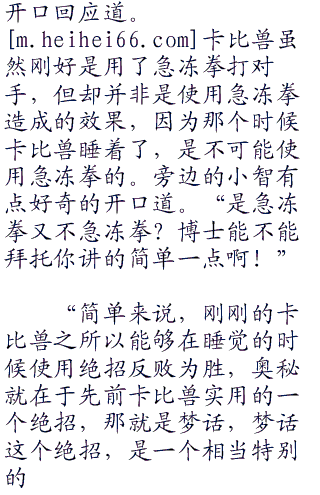 开口回应道。
[m.heihei66.com]卡比兽虽
然刚好是用了急冻拳打对
手，但却并非是使用急冻拳
造成的效果，因为那个时候
卡比兽睡着了，是不可能使
用急冻拳的。旁边的小智有
点好奇的开口道。“是急冻
拳又不急冻拳？博士能不能
拜托你讲的简单一点啊！”
“简单来说，刚刚的卡
比兽之所以能够在睡觉的时
候使用绝招反败为胜，奥秘
就在于先前卡比兽实用的一
个绝招，那就是梦话，梦话
这个绝招，是一个相当特别
的